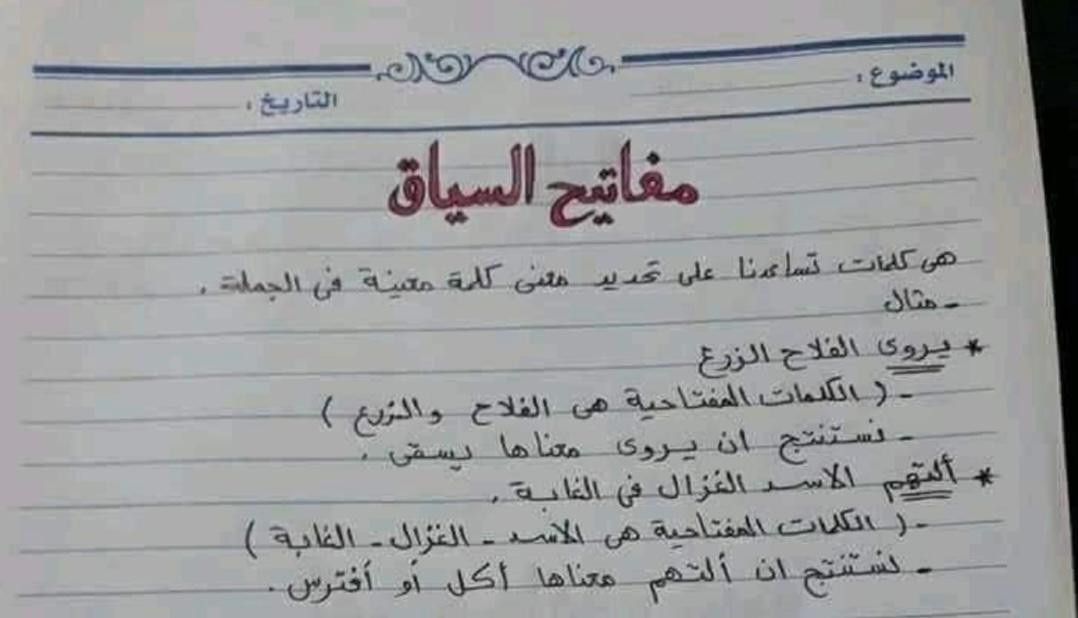 الموضوع :
التاريخ :
مفاتيح السياق
هى كلمات تساعدنا على تحديد معنى كلمة معينة فى الجملة .
- مثال
* يروى الفلاح الزرع
- ( الكلمات المفتاحية هى الفلاح والزرع )
- نستنتج ان يروى معناها يسقى .
* ألتهم الاسد الغزال فى الغابة .
- ( الكلمات المفتاحية هى الأسد - الغزال - الغابة )
- نستنتج ان ألتهم معناها أكل أو أفترس .